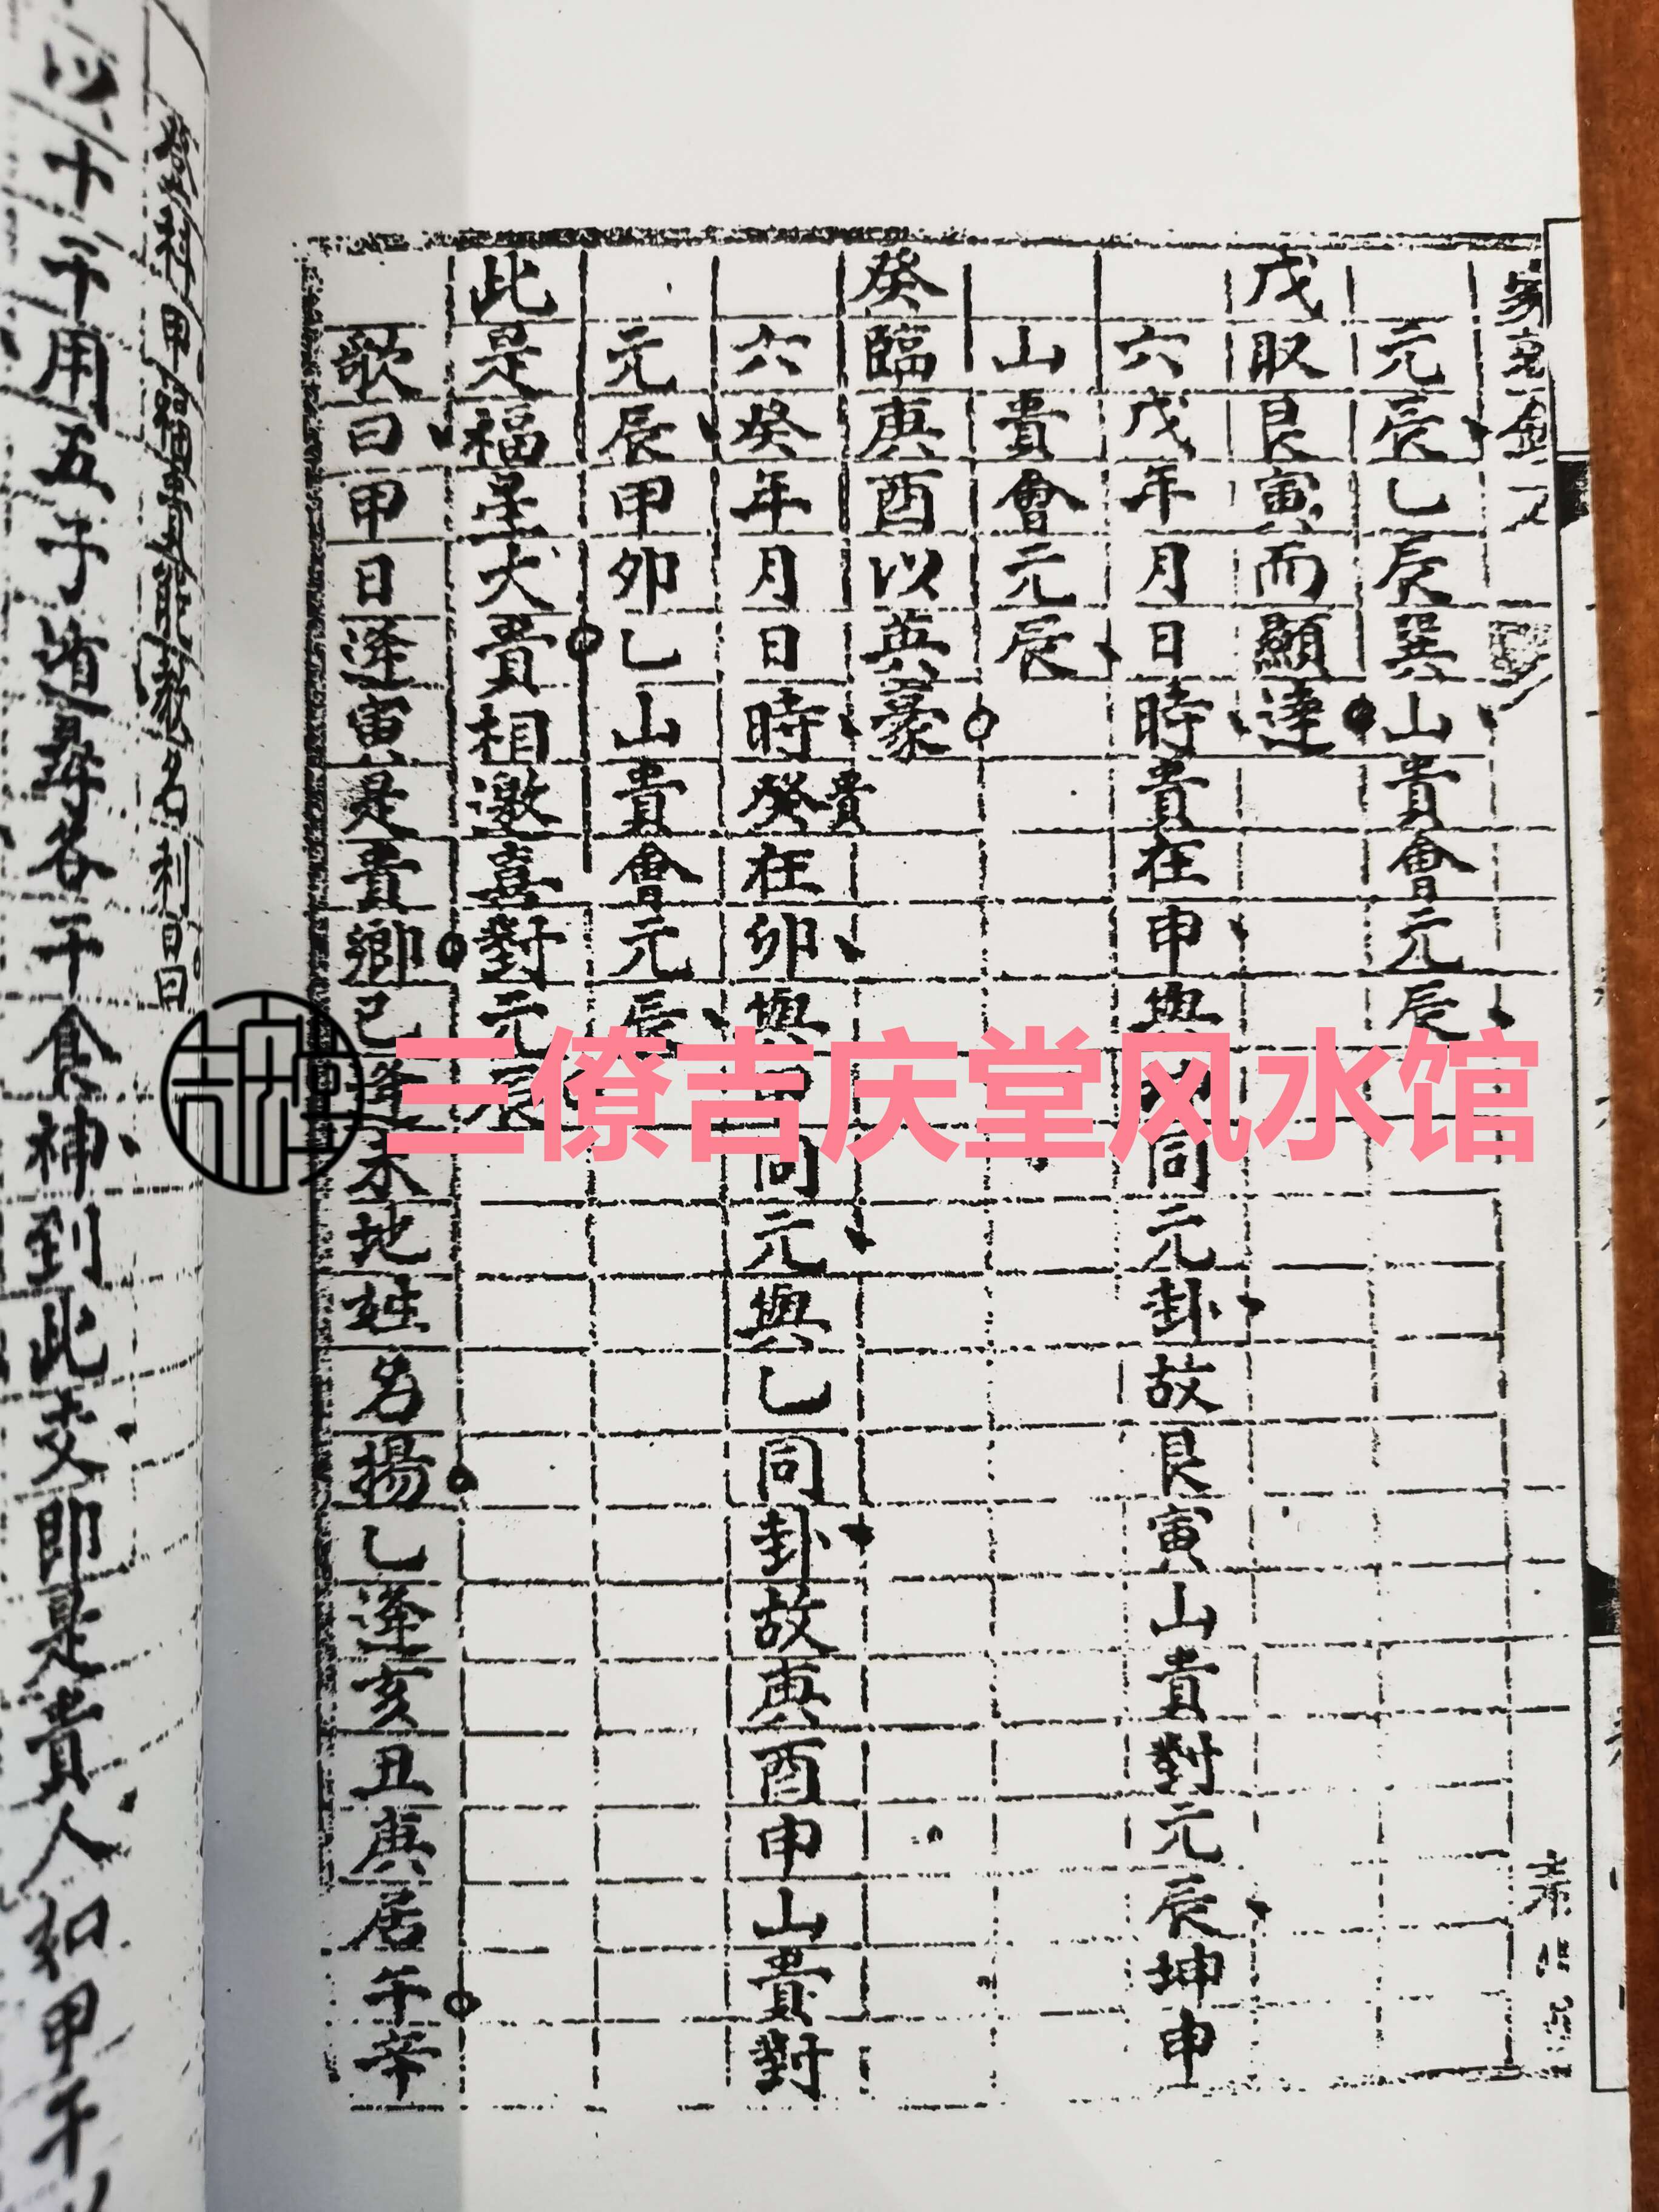 元辰乙辰巽山貴會元辰
戊取艮寅而顯達
六戊年月日時貴在申與同元卦故艮寅山貴對元辰坤申
山貴會元辰
癸臨庚酉以英豪
六癸年月日時癸貴在卯與同元與乙同卦故庚酉申山貴對
元辰甲卯乙山貴會元辰
此是福星大貴相邀喜對元辰
歌曰甲日逢寅是貴鄉己逢未地姓名揚乙逢亥丑庚居午辛
名利昌曰
十干用五子道尋各干食神到此支即是貴人如甲干以
三僚吉庆堂风水馆